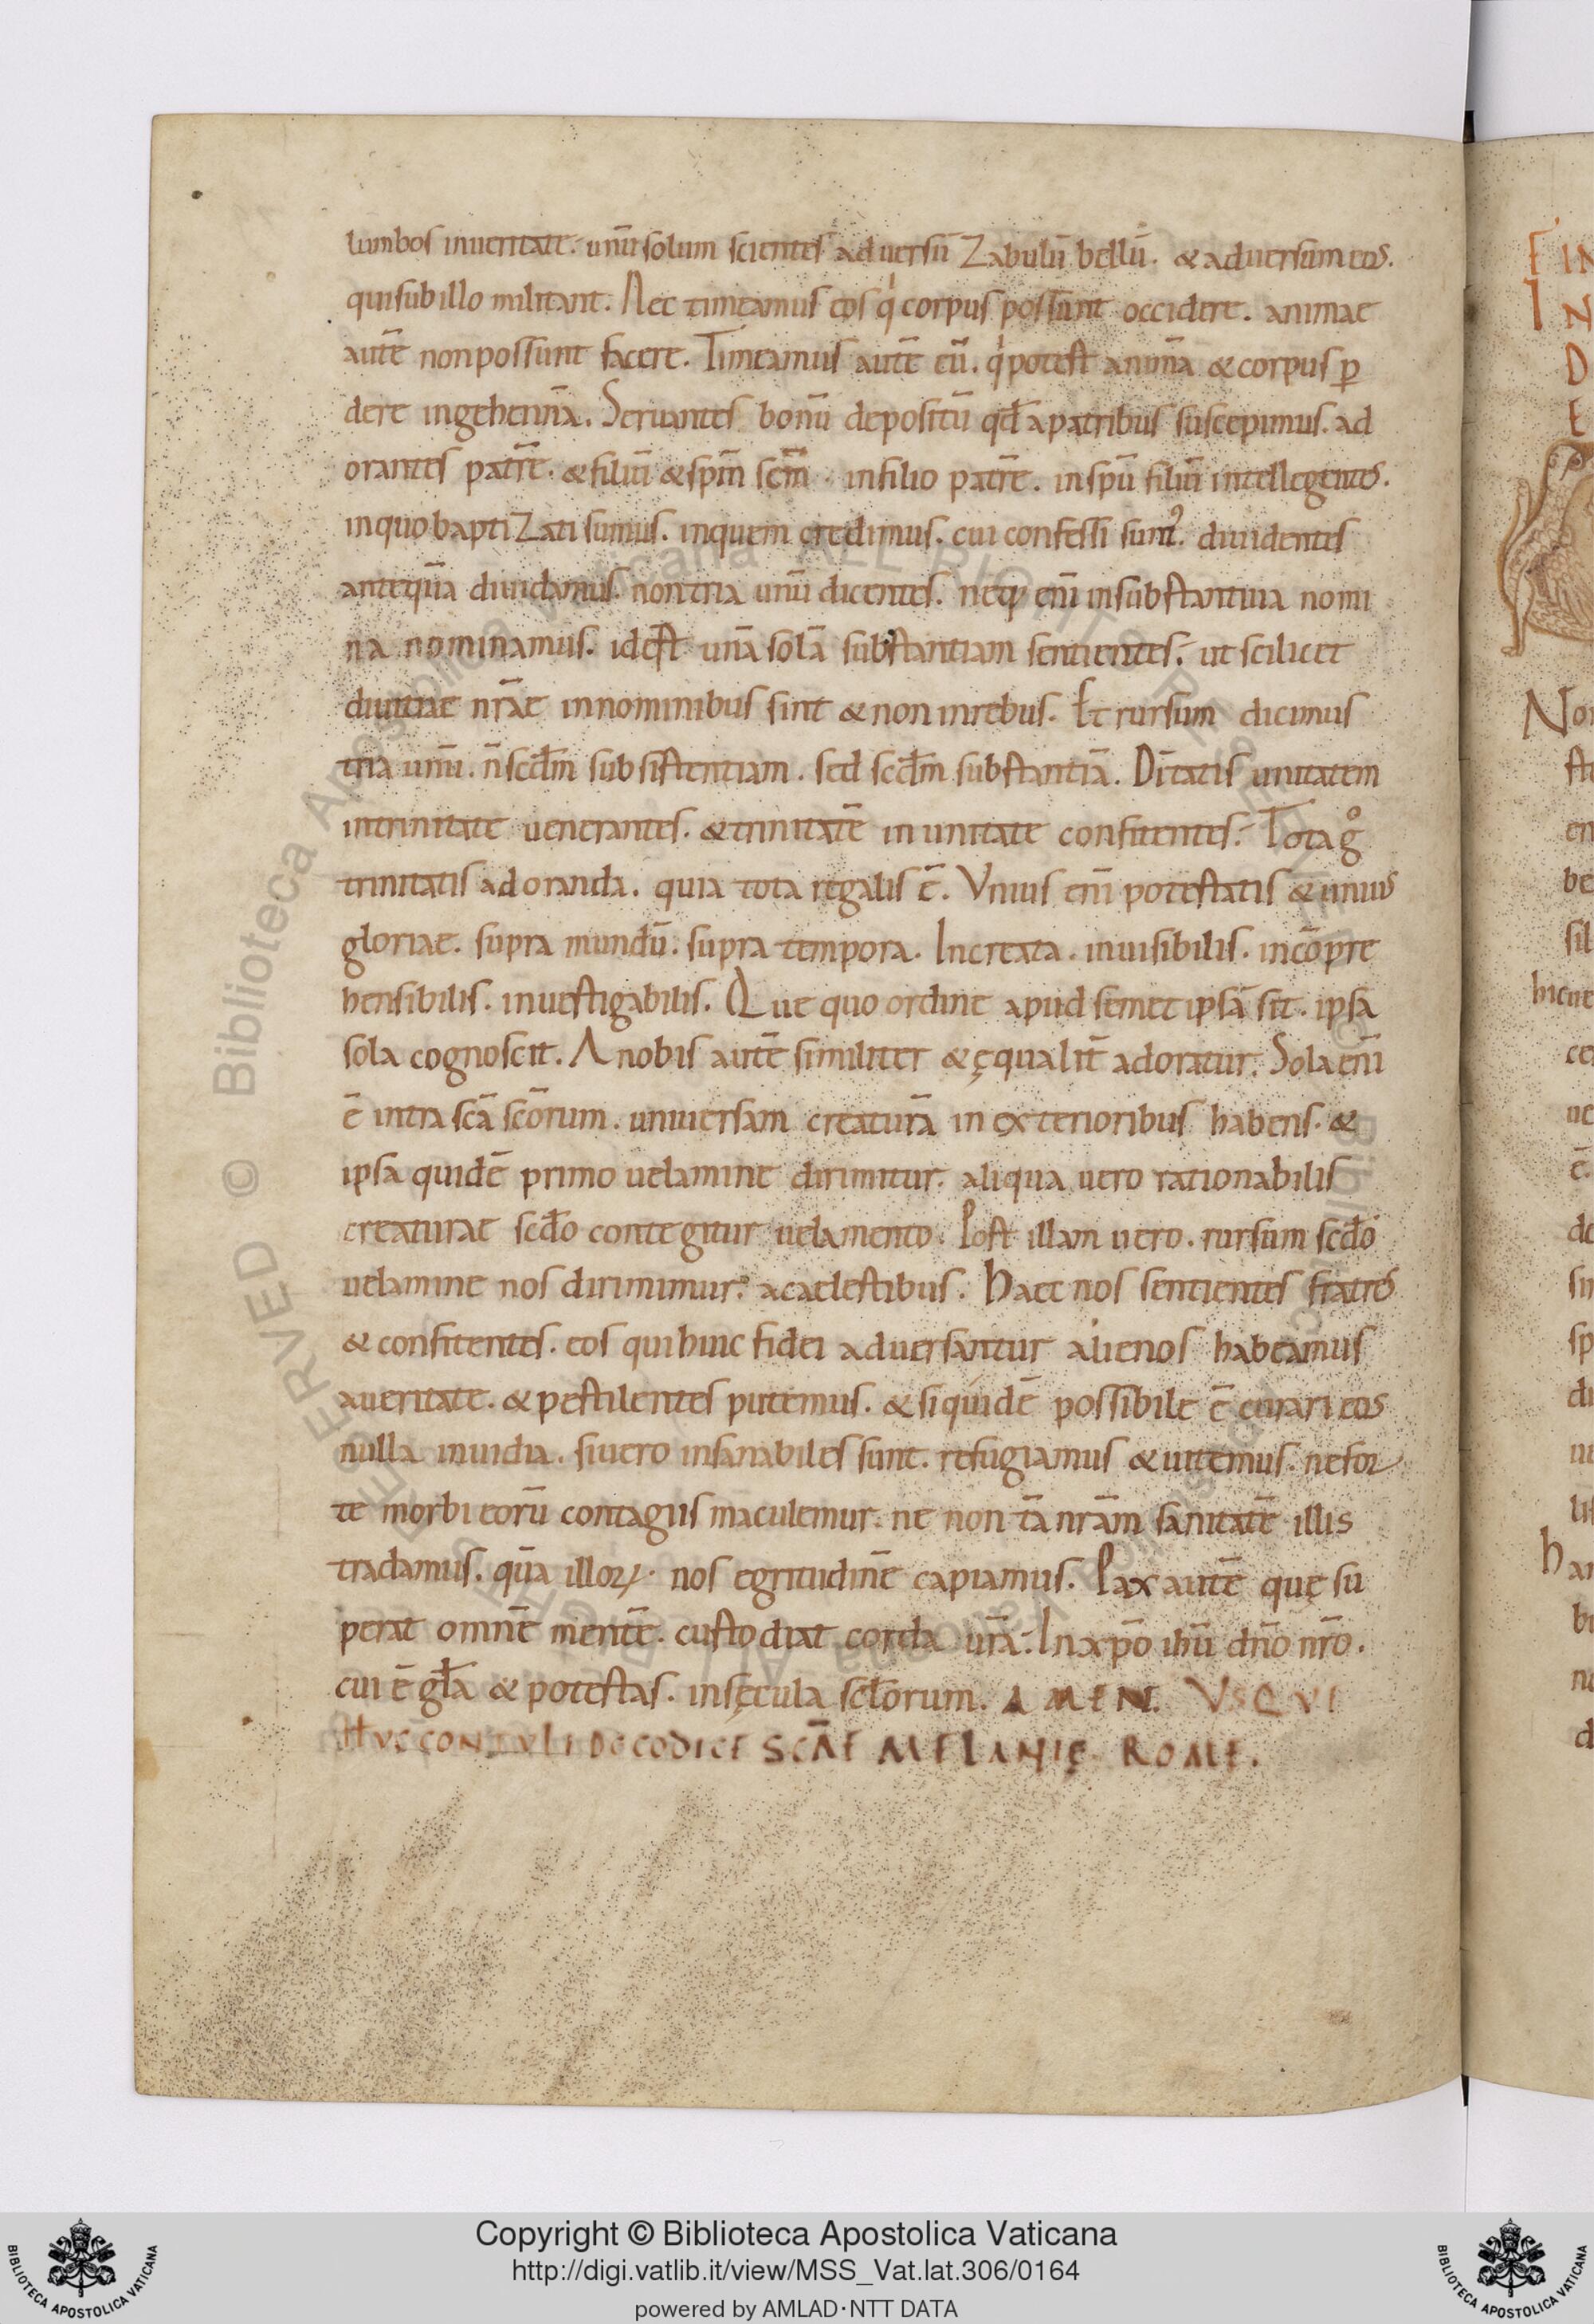 lumbos inueritate. unũ solum scientes aduersũ Zabulũ bellũ. & aduersum eos.
quisubillo militant. Nec timeamus eos qͥ corpus possunt occidere. animae
autẽ nonpossunt facere. Timeamus autẽ eũ. qͥ potest animã & corpus ꝑ
dere ingehennã. Seruantes bonũ depositũ qđ apatribus suscepimus. ad
orantes patrẽ. & filiũ & spm̃ scm̃. infilio patrẽ. inspũ filiũ intellegentes.
inquo baptiZati sumus. inquem credimus. cui confessi sumꝰ. diuidentes
antequã diuidamus. non tria unũ dicentes. neq; enĩ insubstantiua nomi
na nominamus. idest unã solã substantiam sentientes. ut scilicet
diuitiae nrãe innominibus sint & non inrebus. Et rursum dicimus
tria unũ. ñ scđm subsistentiam. sed scđm substantiã. Dĩtatis unitatem
intrinitate uenerantes. & trinitatẽ in unitate confitentes. Tota gͦ
trinitatis adoranda. quia tota regalis ẽ. Vnius enĩ potestatis & unius
gloriae. supra mundũ. supra tempora. Increata. inuisibilis. incõpre
hensibilis. inuestigabilis. Que quo ordine apud semet ipsã sit. ipsa
sola cognoscit. A nobis autẽ similiter & ęqualit̃ adoratur. Sola enĩ
ẽ intra scã scõrum. uniuersam creaturã in exterioribus habens. &
ipsa quidẽ primo uelamine dirimitur. aliqua uero rationabilis
creaturae scđo contegitur uelamento. Post illam uero. rursum scđo
uelamine nos dirimimur. acaelestibus. Haec nos sentientes fratres
& confitentes. eos qui huic fidei aduersantur alienos habeamus
aueritate. & pestilentes putemus. & siquidẽ possibile ẽ curari eos
nulla inuidia. siuero insanabiles sunt. refugiamus & uitemus. nefor
te morbi eorũ contagiis maculemur. ne non tã nrãm sanitatẽ illis
tradamus. quã illoꝝ. nos egritudinẽ capiamus. Pax autẽ quę su
perat omnẽ mentẽ. custodiat corda urã. In xpõ ihũ dño nrõ.
cui ẽ gła & potestas. insęcula scłorum. AMEN. VSQVI
HVC CONTVLI DE CODICE SCÃE MELANIĘ. ROME.
Copyright © Biblioteca Apostolica Vaticana
http://digi.vatlib.it/view/MSS_Vat.lat.306/0164
powered by AMLAD·NTT DATA